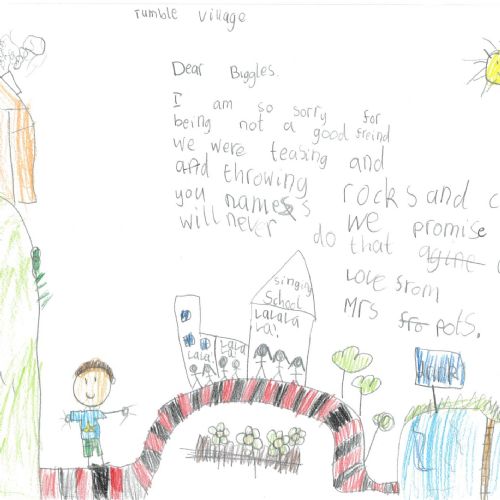 Tumble Village
Dear Biggles.
I am so sorry for
being not a good freind
we were teasing and
throwing rocks and c
you names we promise
will never do that agine
Love from
Mrs pots.
singing
School
LaLaLa
La!
LaLa
LaLa
La!